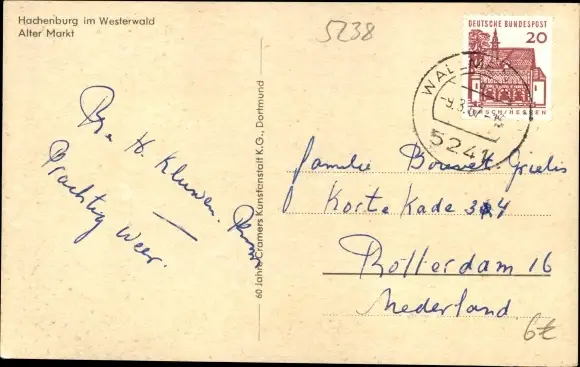 Hachenburg im Westerwald
Alter Markt
5238
DEUTSCHE BUNDESPOST
20
LORSCH/HESSEN
5241
60 Jahre Cramers Kunstanstalt K.G., Dortmund
H. Kluwen.
Prachtig
Weer.
familie Bouvet-Grielis
Korte Kade 34
Rotterdam 16
Nederland
6€